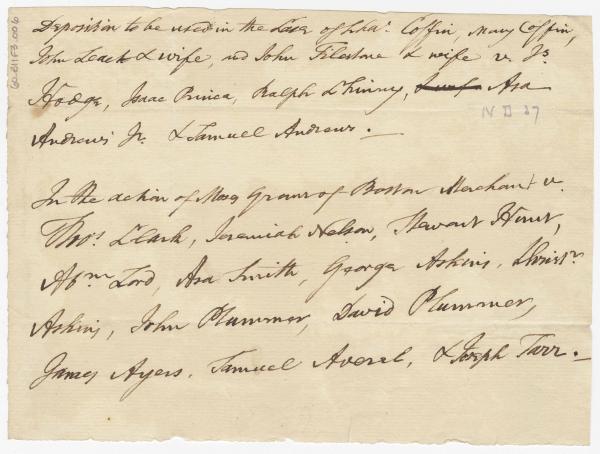 Deposition to be used in the Case of Chas. Coffin, Mary Coffin,
John Leach & wife, and John & wife v. Js.
Hodge, Isaac Prince, Ralph C Asa
Andrews Jr. & Samuel Andrews.
N D 27
In the action of Moses Grant of Boston Merchant v.
Thos. Clark, Jeremiah Nelson, Stewart Hunt,
Abm. Lord, Asa Smith, George Askins, Christr.
Askins, John Plummer, David Plummer,
James Ayers, Samuel Averal, & Joseph Tarr.